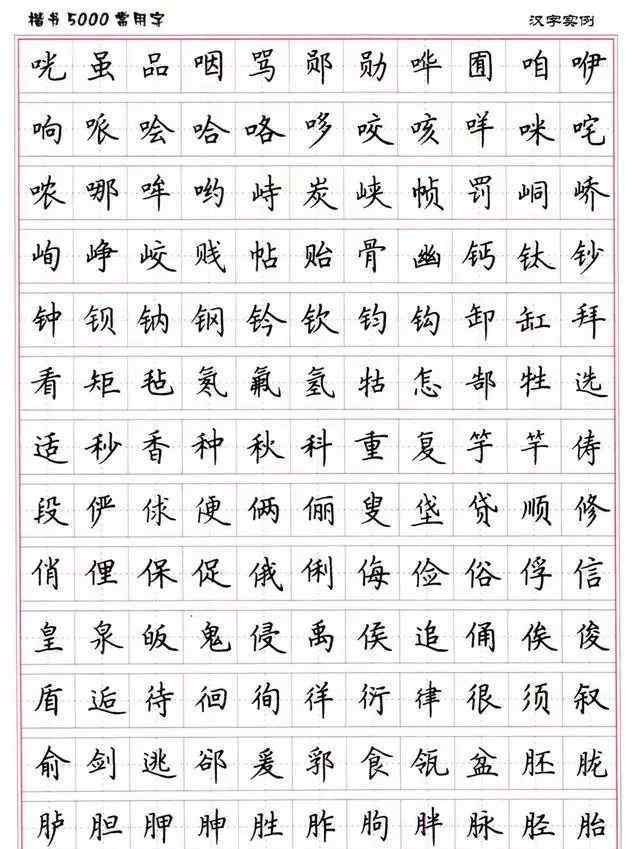 楷书5000常用字 汉字实例
咣虽品咽骂郧勋哗囿咱咿
响哌哙哈咯哆咬咳咩咪咤
哝哪哞哟峙炭峡帧罚峒峤
峋峥峧贱帖贻骨幽钙钛钞
钟钡钠钢钤钦钧钩卸缸拜
看矩毡氮氟氢牯怎郜牲选
适秒香种秋科重复竽竿俦
段俨俅便俩俪叟垡贷顺修
俏俚保促俄俐侮俭俗俘信
皇泉皈鬼侵禹侯追俑俟俊
盾逅待徊徇徉衍律很须叙
俞剑逃郤爰郛食瓴盆胚胧
胪胆胛胂胜胙胊胖脉胫胎